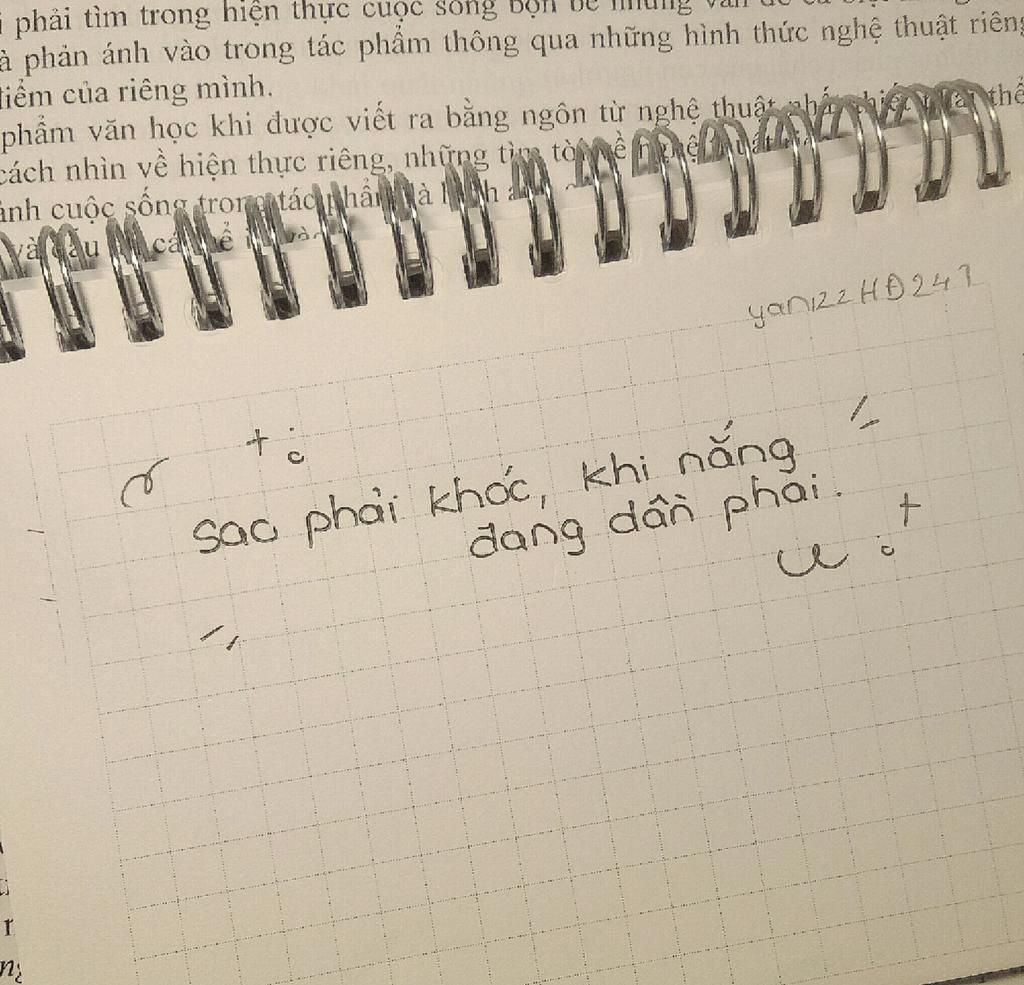 phải tìm trong hiện thực cuộc sống bộn bề những
phản ánh vào trong tác phẩm thông qua những hình thức nghệ thuật riêng
của riêng mình.
phẩm văn học khi được viết ra bằng ngôn từ nghệ thuật
cách nhìn về hiện thực riêng, những tìm
cuộc sống trong tác
và
yan122HĐ247
sao phải khóc, khi nắng
đang dần phai.